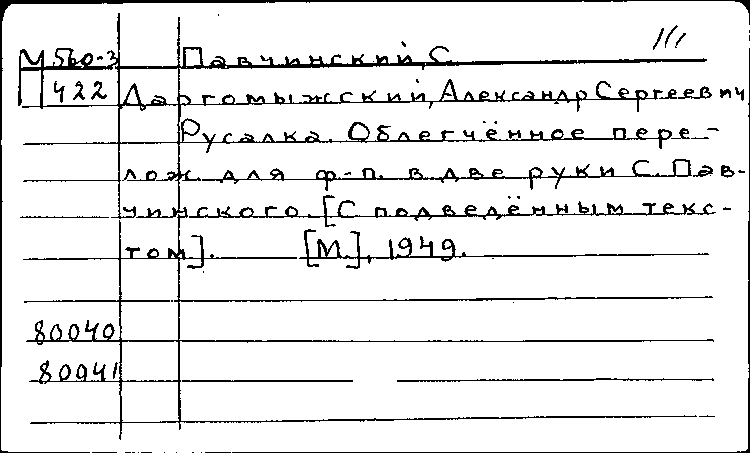 М 560-3 Павчинский, С.
422 Даргомыжский, Александр Сергеевич
Русалка. Облегчённое пере-
лож. для ф-п. в две руки С. Пав-
чинского. [С подведённым текс-
том]. [М.], 1949.
80040
80041